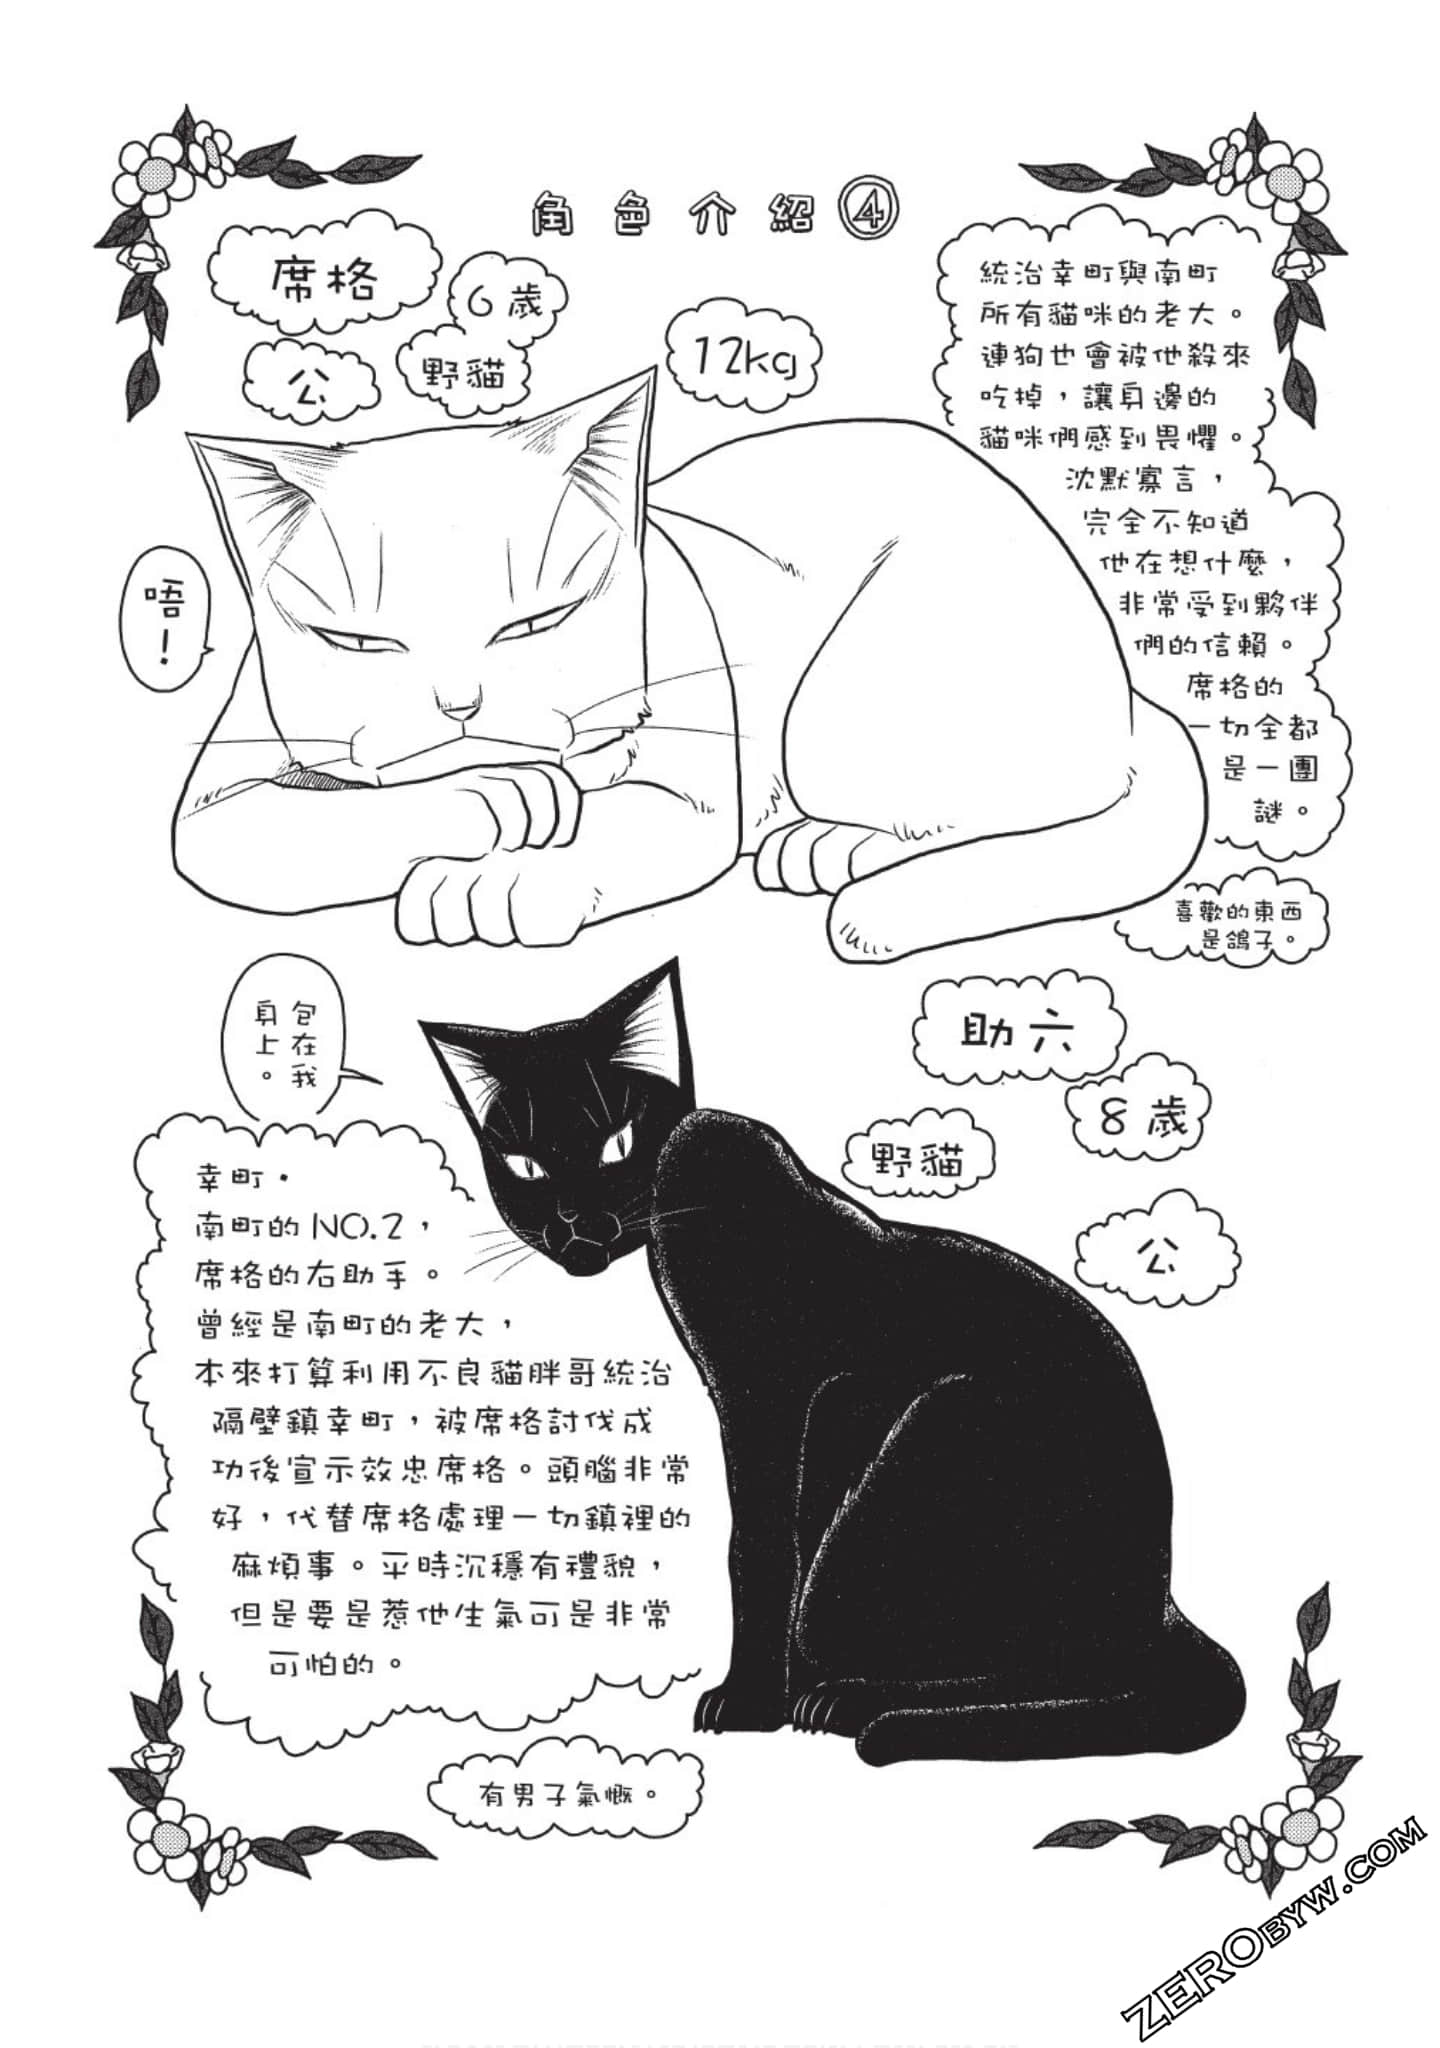 角色介紹④
席格
6歲
公
野貓
12kg
統治幸町與南町
所有貓咪的老大。
連狗也會被他殺來
吃掉，讓身邊的
貓咪們感到畏懼。
沈默寡言，
完全不知道
他在想什麼，
非常受到夥伴
們的信賴。
席格的
一切全都
是一團
謎。
唔！
喜歡的東西
是鴿子。
包在我
身上。
助六
8歲
野貓
公
幸町・
南町的NO.2，
席格的右助手。
曾經是南町的老大，
本來打算利用不良貓胖哥統治
隔壁鎮幸町，被席格討伐成
功後宣示效忠席格。頭腦非常
好，代替席格處理一切鎮裡的
麻煩事。平時沉穩有禮貌，
但是要是惹他生氣可是非常
可怕的。
有男子氣慨。
ZEROBYW.COM